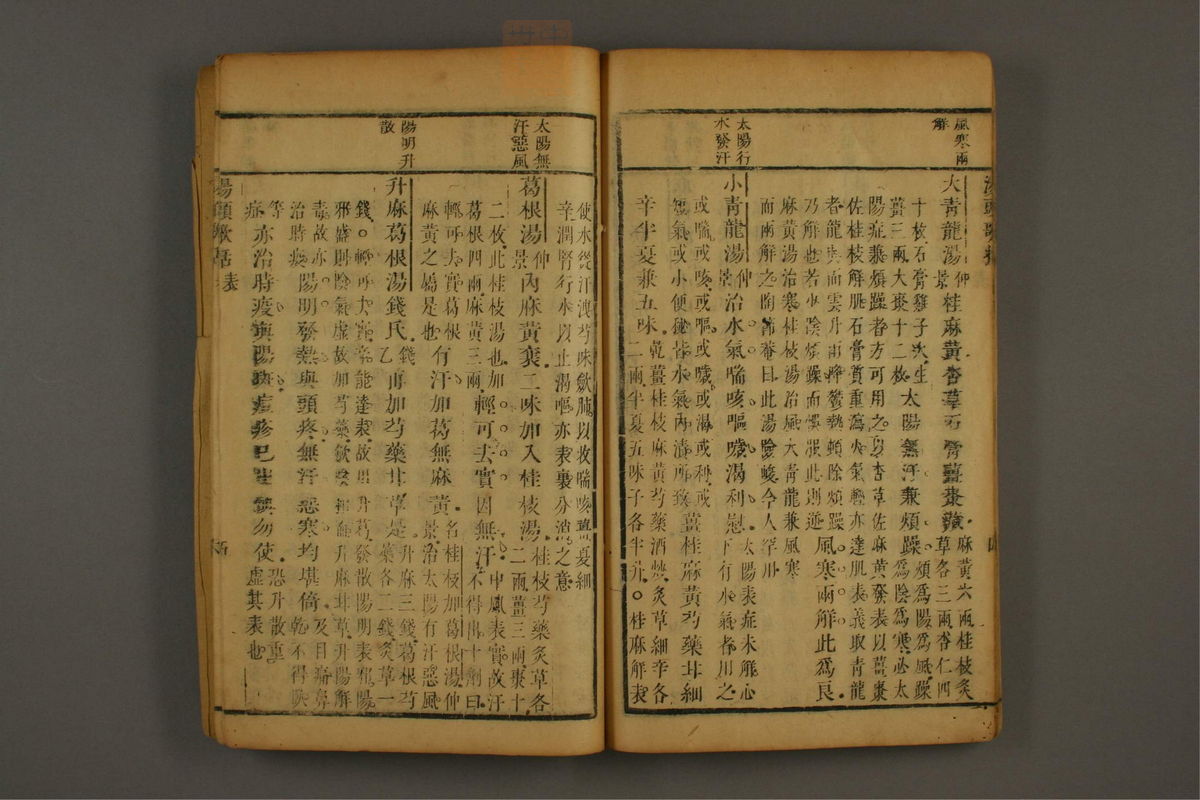 風寒兩
解
大青龍湯仲景桂麻黃杏草石膏薑棗藏麻黃六兩桂枝炙草各三兩杏仁四
十枚石膏雞子大生薑三兩大棗十二枚太陽無汗兼煩躁煩爲陽爲風躁爲陰爲寒必太
陽症兼煩躁者方可用之以杏草佐麻黃發表以薑棗
佐桂枝解肌石膏質重瀉火氣輕亦達肌表義取青龍
者龍興而雲升雨降鬱熱頓除煩躁
乃解也若少陰煩躁而誤服此則逆風寒兩解此爲良
麻黃湯治寒桂枝湯治風大青龍兼風寒
而兩解之陶節菴曰此湯險峻今人罕用
太陽行
水發汗
小青龍湯仲景治水氣喘咳嘔噦渴利慰太陽表症未解心下有水氣者用之
或喘或咳或嘔或噦或渴或利或
短氣或小便秘皆水氣內漬所致薑桂麻黃芍藥甘細
辛半夏兼五味乾薑桂枝麻黃芍藥酒炒炙草細辛各二兩半夏五味子各半升○桂麻解表
使水從汗洩芍味歛肺以收喘咳薑夏細
辛潤腎行水以止渴嘔亦表裏分消之意
太陽無
汗惡風
葛根湯仲景內麻黃襄二味加入桂枝湯桂枝芍藥炙草各二兩薑三兩棗十
二枚此桂枝湯也加
葛根四兩麻黃三兩輕可去實因無汗中風表實故汗不得出十劑曰
輕可去實葛根
麻黃之屬是也有汗加葛無麻黃名桂枝加葛根湯仲景治太陽有汗惡風
陽明升
散
升麻葛根湯錢氏錢乙再加芍藥甘草是升麻三錢葛根芍藥各二錢炙草一
錢○輕可去實辛能達表故用升葛發散陽明表邪陽
邪盛則陰氣虛故加芍藥歛陰和血升麻甘草升陽解
毒故亦
治時疫陽明發熱與頭疼無汗惡寒均堪倚及目痛鼻乾不得臥
等症亦治時疫與陽斑痘疹已出慎勿使恐升散重虛其表也
湯頭歌括 表